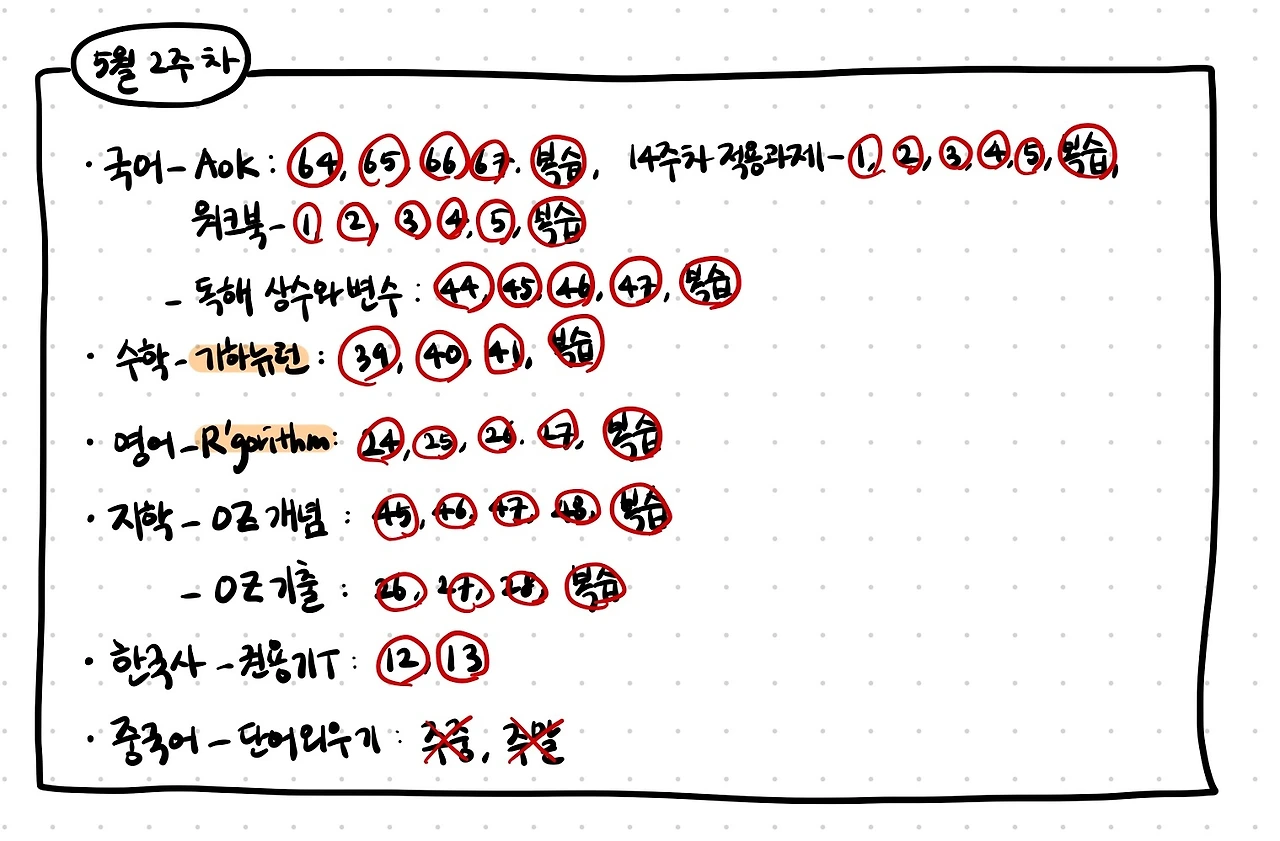 5월 2주차
· 국어 - AOK : 64, 65, 66, 67. 복습, 14주차 적용과제 - 1, 2, 3, 4, 5, 복습,
워크북 - 1 2, 3 4, 5, 복습
- 독해 상수와 변수 : 44, 45, 46, 47, 복습
· 수학 - 기하뉴런 : 39, 40, 41, 복습
· 영어 - R'gorithm : 24, 25, 26. 27, 복습
· 지학 - OZ 개념 : 45, 46, 47, 48, 복습
- OZ 기출 : 26, 27, 28, 복습
· 한국사 - 권용기T : 12, 13
· 중국어 - 단어외우기 : 주중, 주말